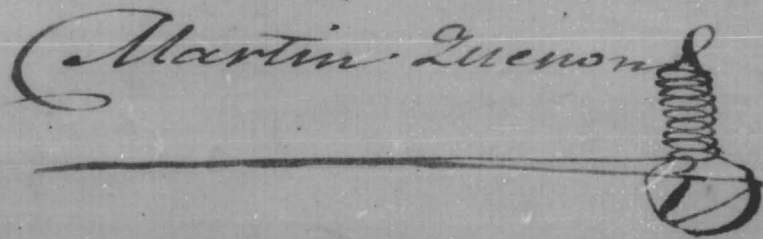 Martin Quenon